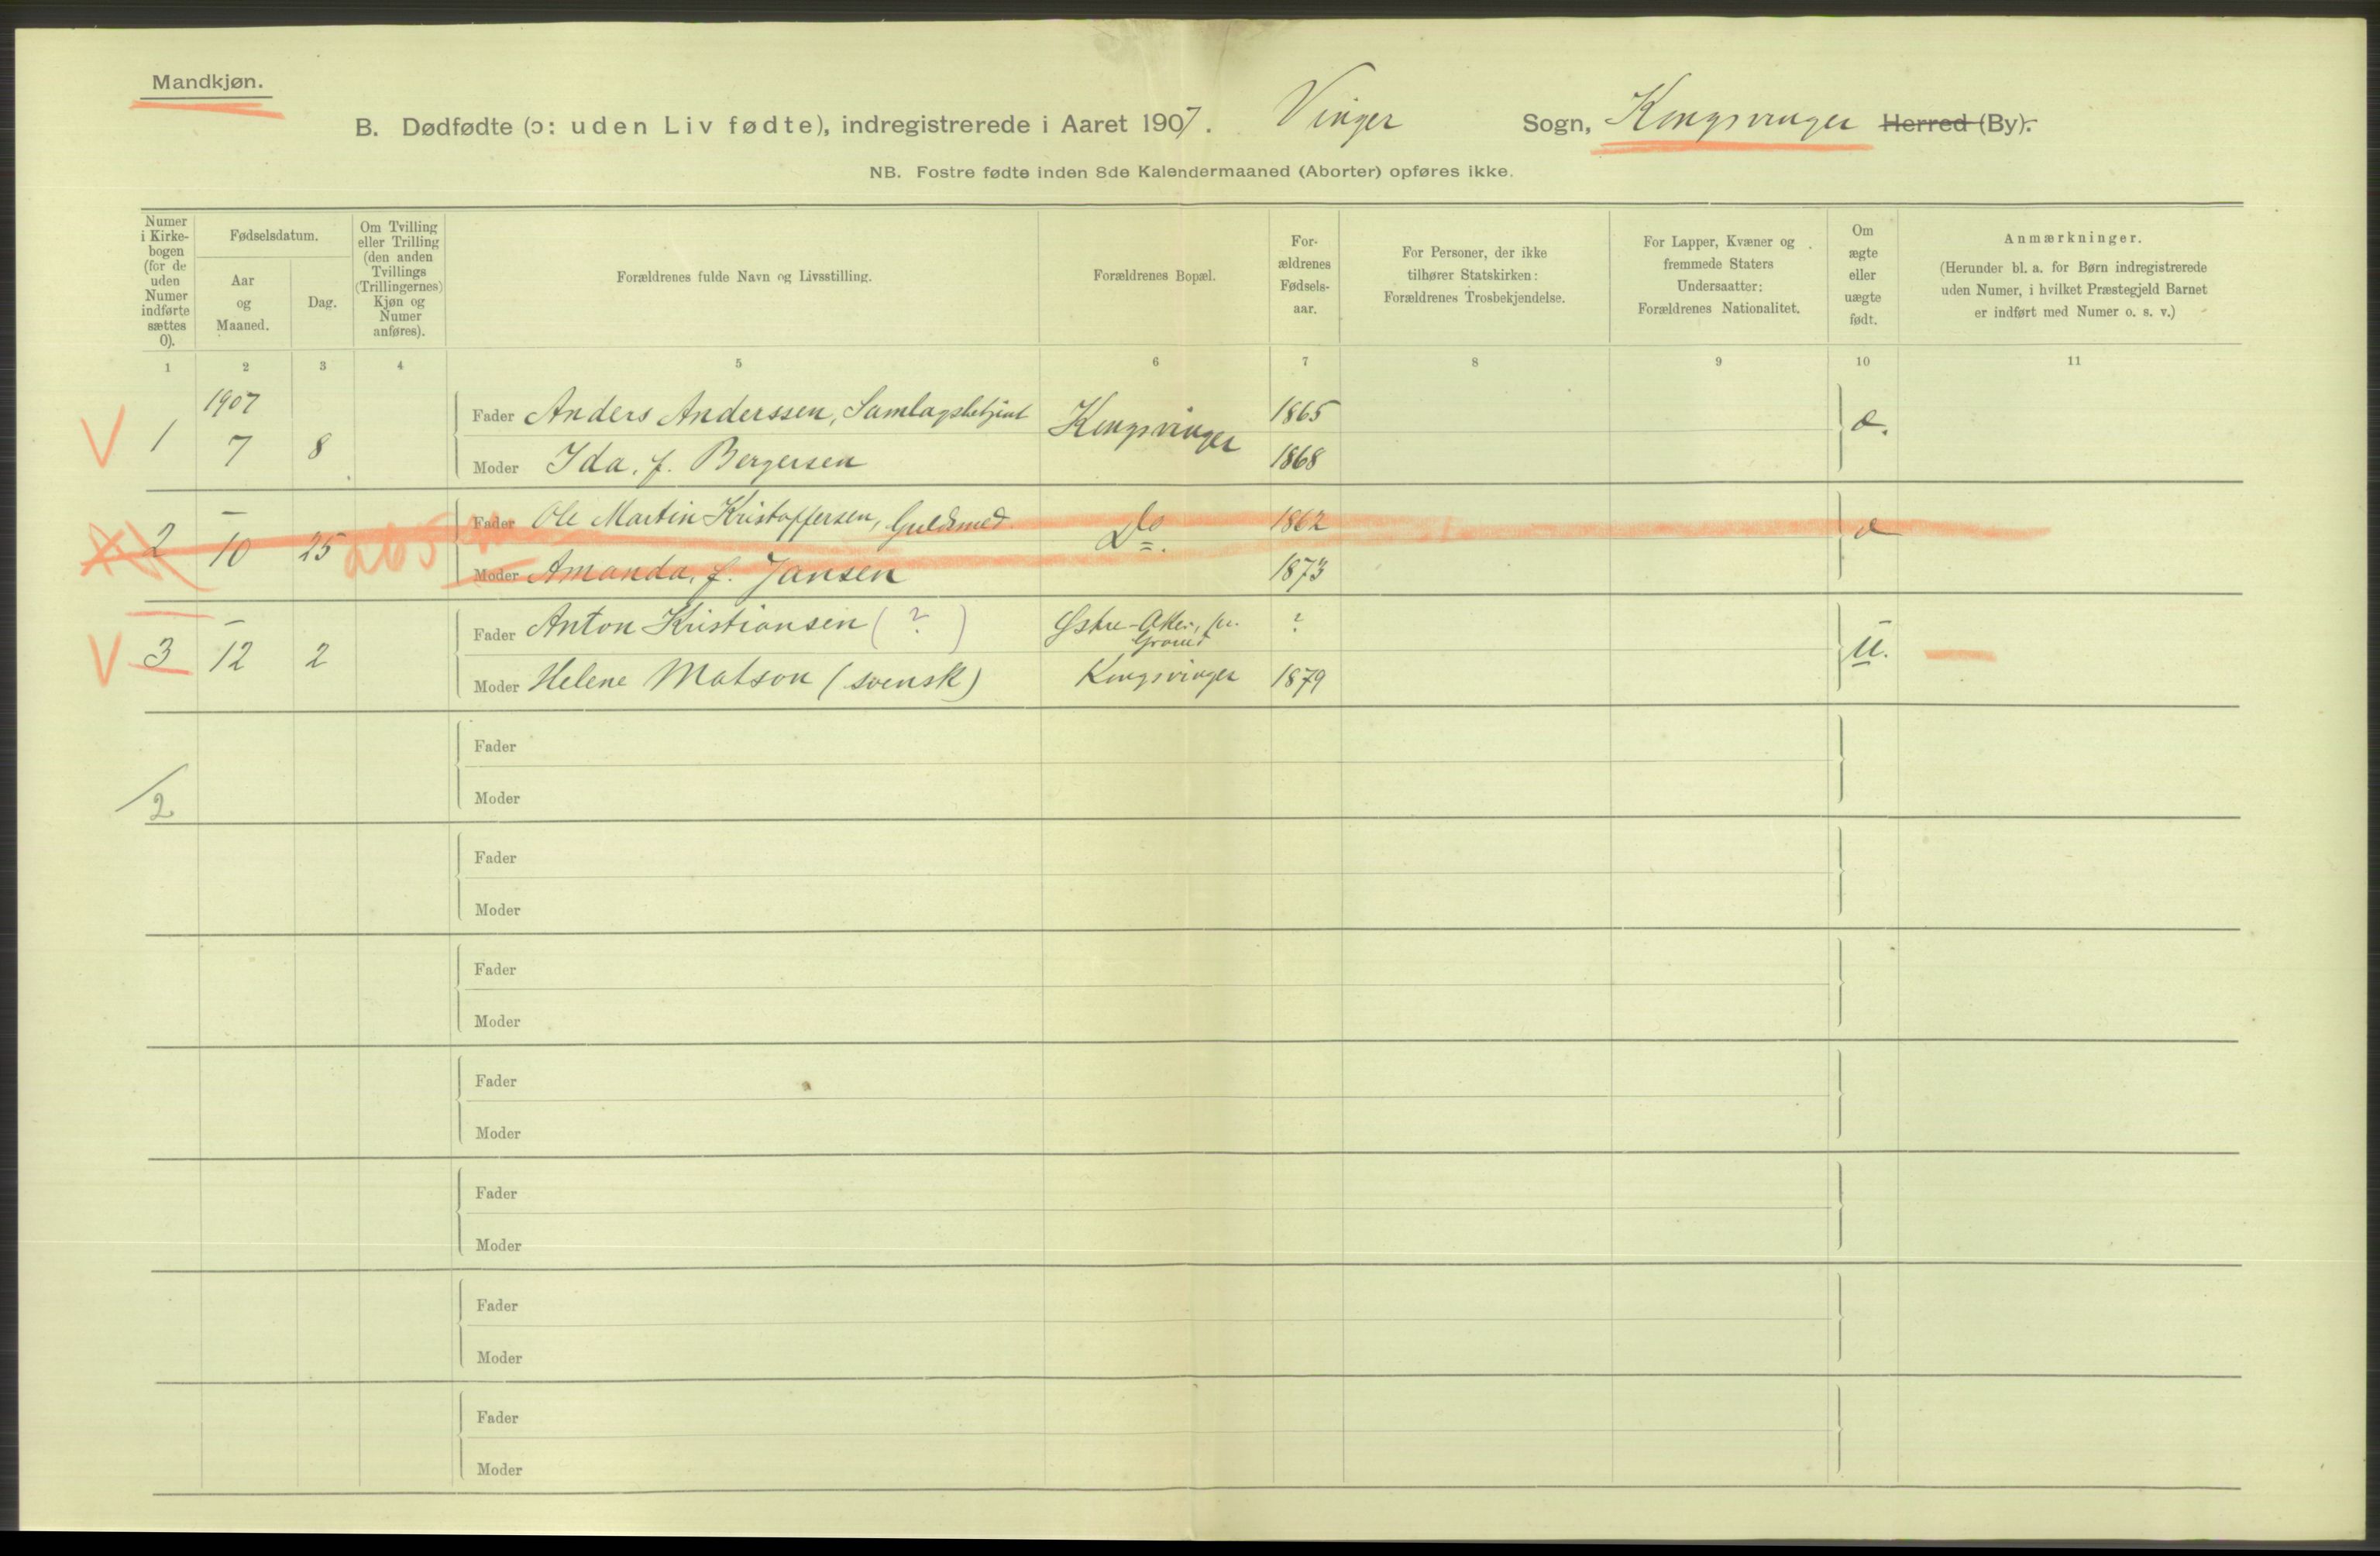 Mandkjøn.
B. Dødfødte (ɔ: uden Liv fødte), indregistrerede i Aaret 1907. Vinger Sogn, Kongsvinger Herred (By).
NB. Fostre fødte inden 8de Kalendermaaned (Aborter) opføres ikke.
Numer
i Kirke-
bogen
(for de
uden
Numer
indførte
sættes
0).
Fødselsdatum.
Aar
og
Maaned.
Dag.
Om Tvilling
eller Trilling
(den anden
Tvillings
(Trillingernes)
Kjøn og
Numer
anføres).
Forældrenes fulde Navn og Livsstilling.
Forældrenes Bopæl.
For-
ældrenes
Fødsels-
aar.
For Personer, der ikke
tilhører Statskirken:
Forældrenes Trosbekjendelse.
For Lapper, Kvæner og
fremmede Staters
Undersaatter:
Forældrenes Nationalitet.
Om
ægte
eller
uægte
født.
Anmærkninger.
(Herunder bl. a. for Børn indregistrerede
uden Numer, i hvilket Præstegjeld Barnet
er indført med Numer o. s. v.)
1 2 3 4 5 6 7 8 9 10 11
1907
V 1 7 8 Fader Anders Anderssen, Samlagsbetjent Kongsvinger 1865 æ.
Moder Ida, f. Bergersen 1868
2 – 10 25 Fader Ole Martin Kristoffersen, Guldsmed Do. 1862 æ
Moder Amanda, f. Jansen 1873
V 3 – 12 2 Fader Anton Kristiansen (?) Østre-Aker, ? u.
Moder Helene Matson (svensk) Kongsvinger 1879
Fader
Moder
2
Fader
Moder
Fader
Moder
Fader
Moder
Fader
Moder
Fader
Moder
Fader
Moder